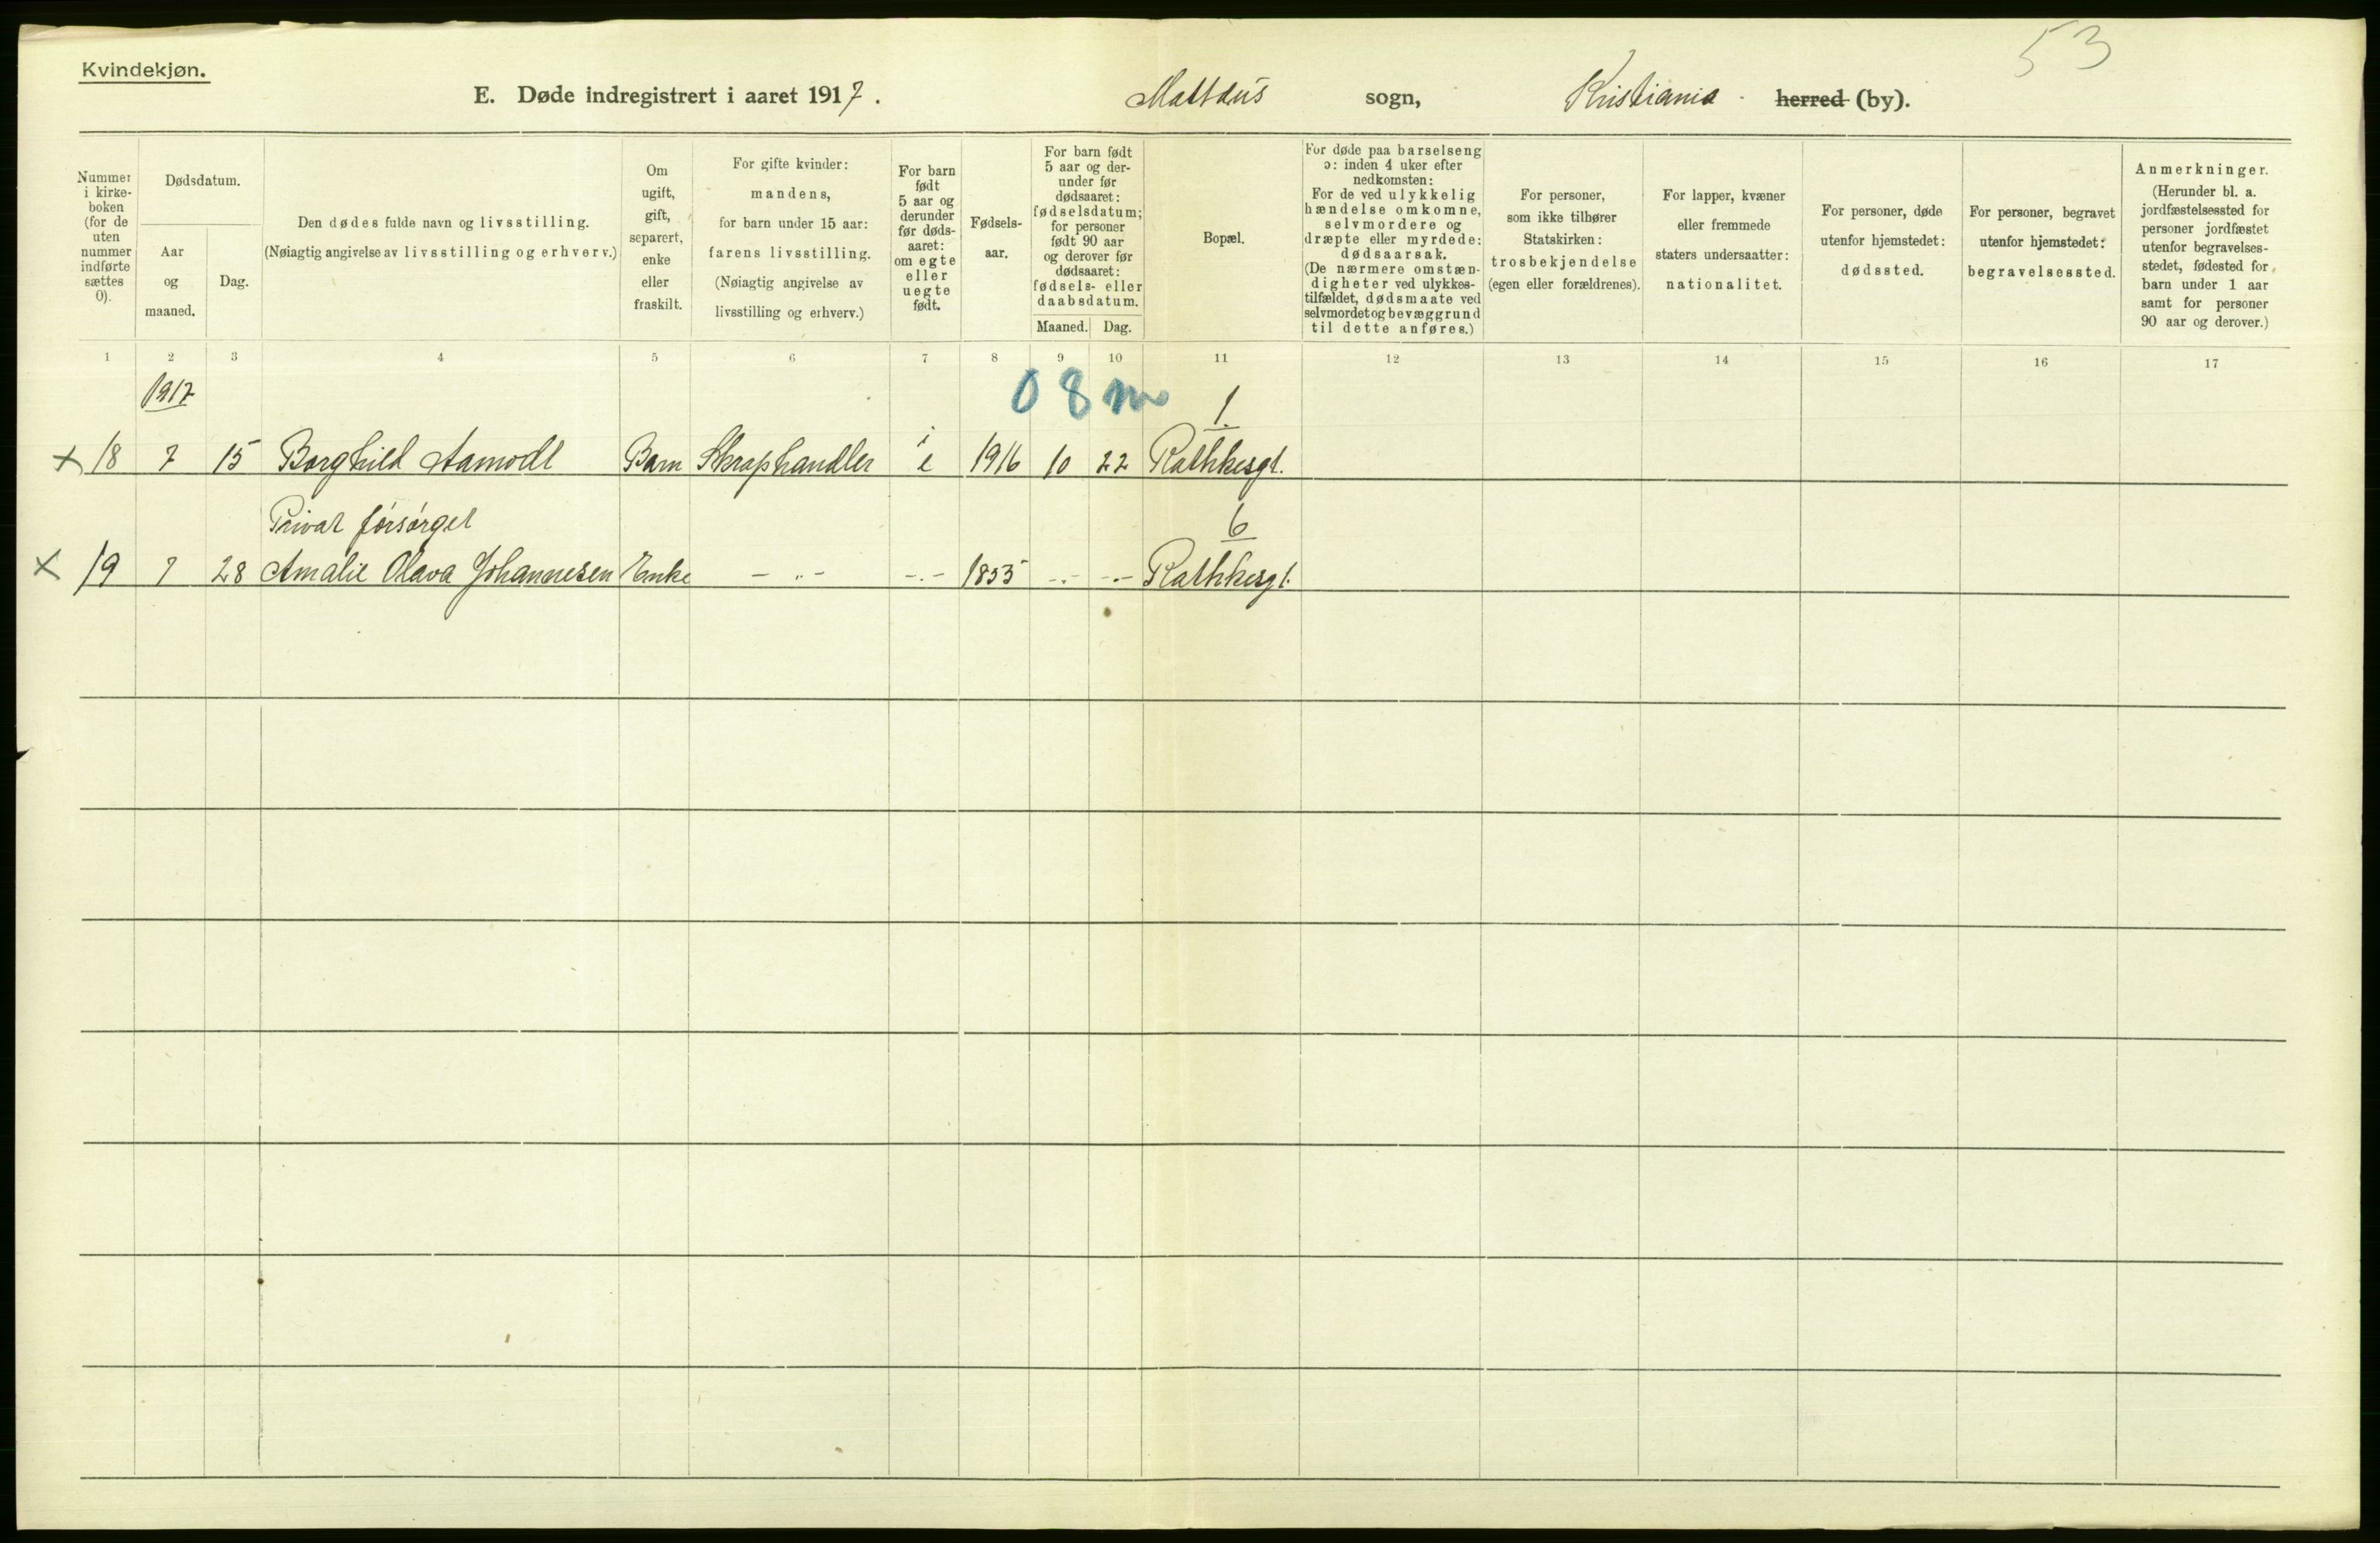 53
Kvindekjøn.
E. Døde indregistrert i aaret 1917. Mattæus sogn, Kristiania herred (by).
Nummer i kirke-boken (for de uten nummer indførte sættes 0).
Dødsdatum.
Aar og maaned.
Dag.
Den dødes fulde navn og livsstilling.
(Nøiagtig angivelse av livsstilling og erhverv.)
Om ugift, gift, separert, enke eller fraskilt.
For gifte kvinder:
mandens,
for barn under 15 aar:
farens livsstilling.
(Nøiagtig angivelse av
livsstilling og erhverv.)
For barn født 5 aar og derunder før døds-aaret: om egte eller uegte født.
Fødsels-
aar.
For barn født 5 aar og der-under før dødsaaret: fødselsdatum; for personer født 90 aar og derover før dødsaaret: fødsels- eller daabsdatum.
Maaned. Dag.
Bopæl.
For døde paa barselseng ɔ: inden 4 uker efter nedkomsten: For de ved ulykkelig hændelse omkomne, selvmordere og dræpte eller myrdede: dødsaarsak. (De nærmere omstæn-digheter ved ulykkes-tilfældet, dødsmaate ved selvmordet og bevæggrund til dette anføres.)
For personer,
som ikke tilhører
Statskirken:
trosbekjendelse
(egen eller forældrenes).
For lapper, kvæner
eller fremmede
staters undersaatter:
nationalitet.
For personer, døde
utenfor hjemstedet:
dødssted.
For personer, begravet
utenfor hjemstedet:
begravelsessted.
Anmerkninger.
(Herunder bl. a. jordfæstelsessted for personer jordfæstet utenfor begravelses-stedet, fødested for barn under 1 aar samt for personer 90 aar og derover.)
1 2 3 4 5 6 7 8 9 10 11 12 13 14 15 16 17
1917 08 m 1.
x 18 7 15 Borghild Aamodt Barn Skraphandler e 1916 10 22 Rathkesgt.
Privat forsørget 6
x 19 7 28 Amalie Olava Johannesen Enke - " - - " - 1835 - " - - " - Rathkesgt.